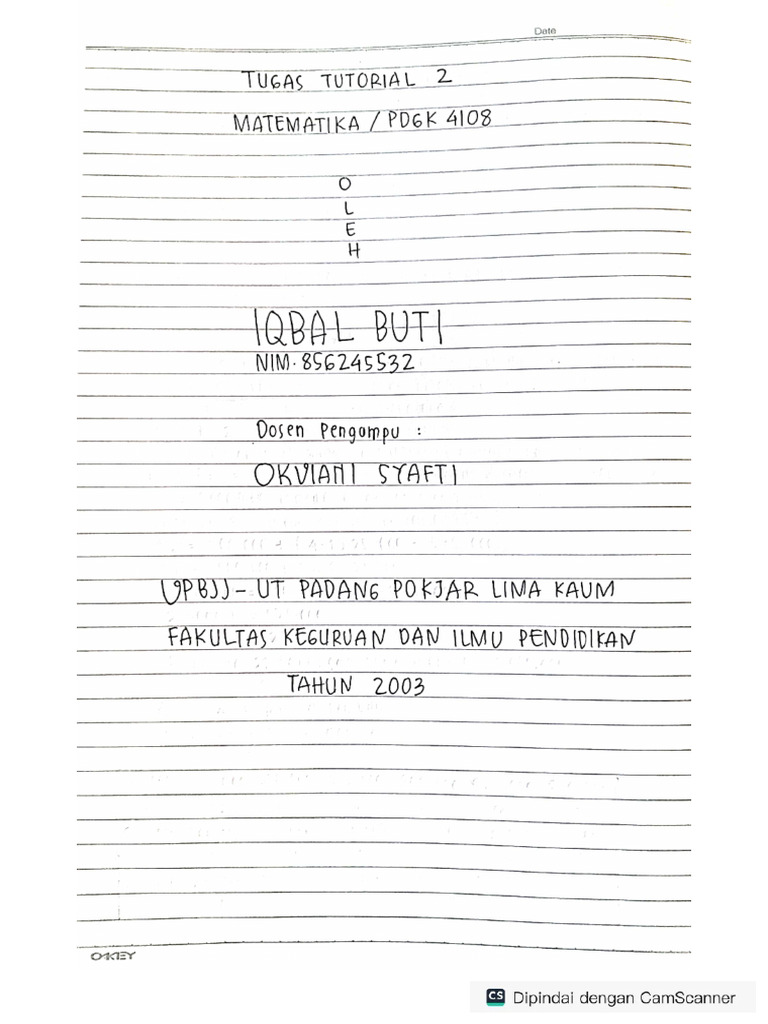 Date
TUGAS TUTORIAL 2
MATEMATIKA / PDGK 4108
O
L
E
H
IQBAL BUTI
NIM. 856245532
Dosen Pengampu :
OKVIANI SYAFTI
UPBJJ - UT PADANG POKJAR LIMA KAUM
FAKULTAS KEGURUAN DAN ILMU PENDIDIKAN
TAHUN 2003
OKEY
CS Dipindai dengan CamScanner